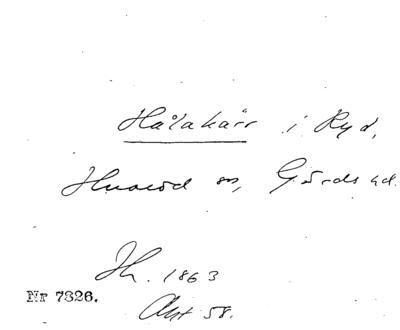 Hålakärr i Ryd,
Huaröd sn, Gärds hd.
Jh. 1863
Nr 7326.
Akt 58.